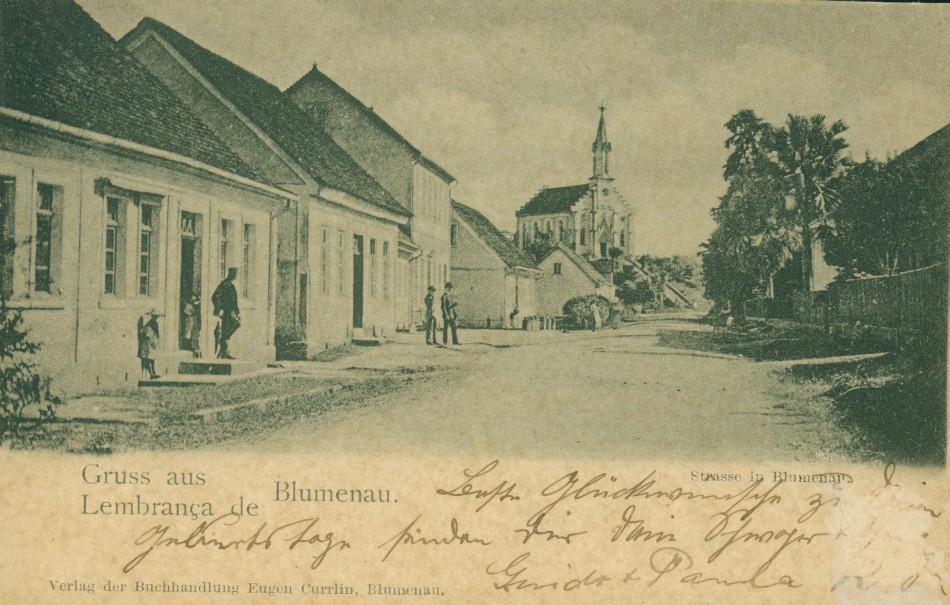 Gruss aus
Lembrança de
Blumenau.
Strasse in Blumenau.
Beste Glückwünsche zu Dein
Geburtstage senden Dir Dein Schwager
Guido +
Verlag der Buchhandlung Eugen Currlin, Blumenau.